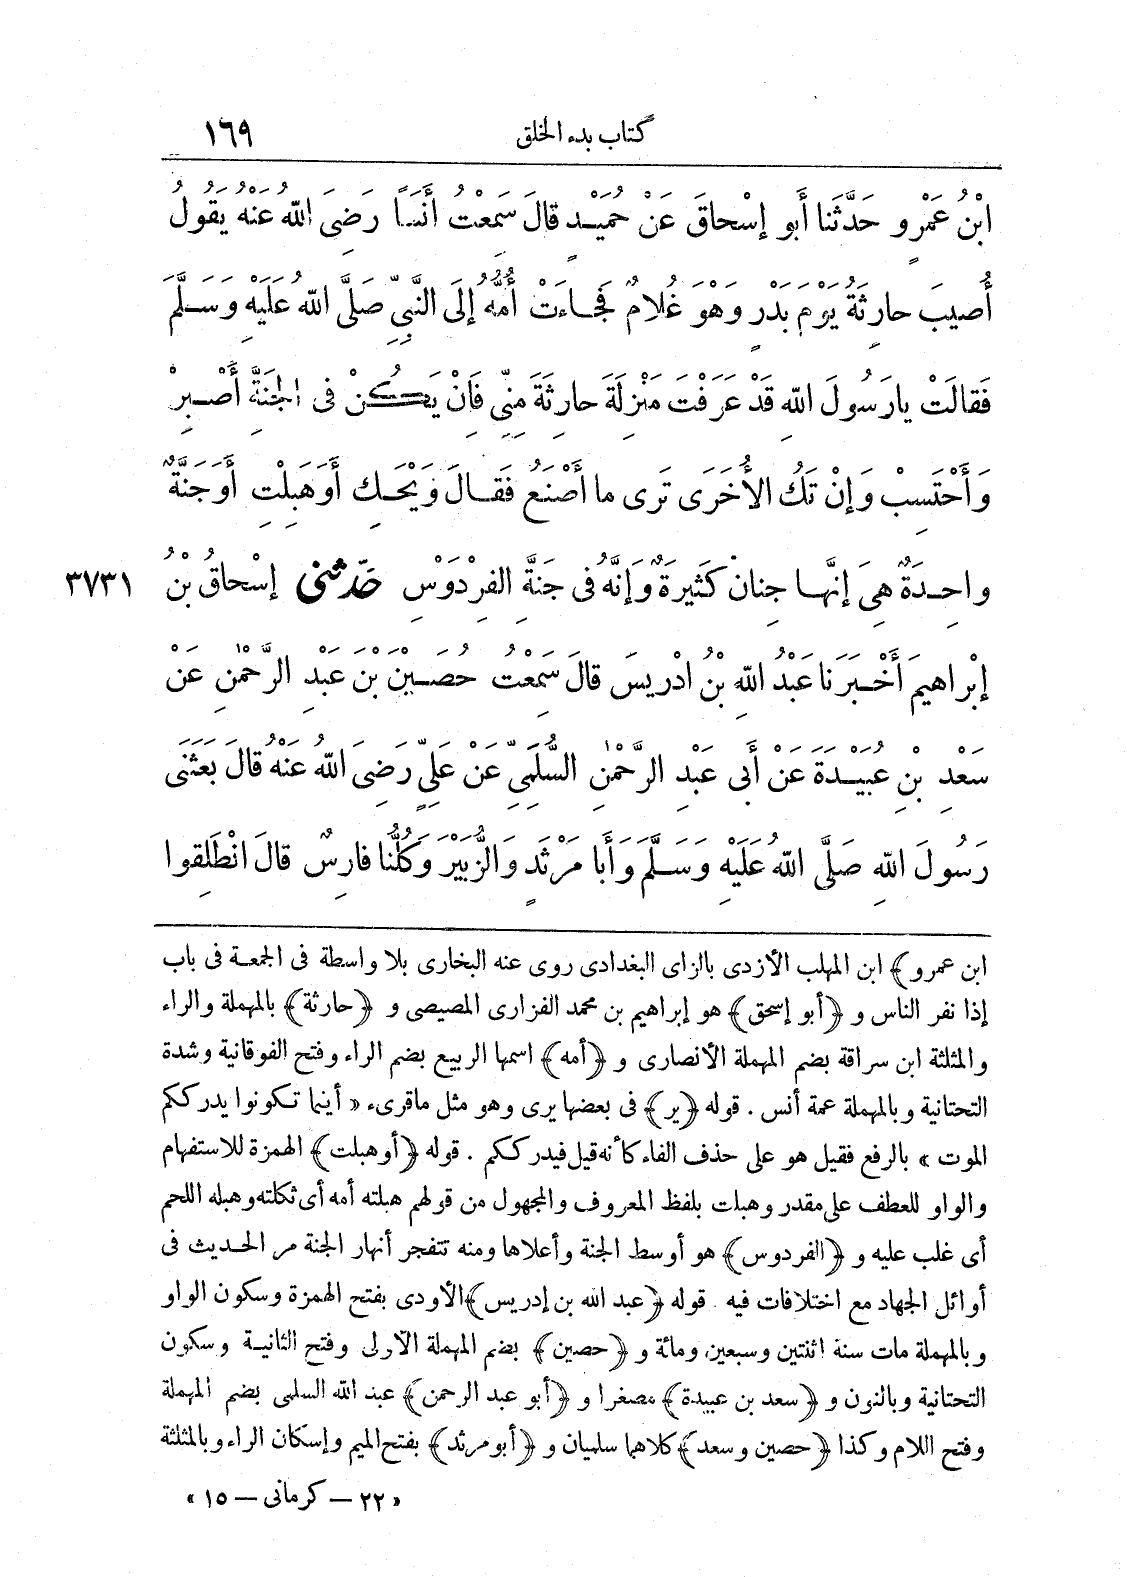 كتاب بدء الخلق ١٦٩
ابْنُ عَمْرٍو حَدَّثَنا أَبو إسْحاقَ عَنْ حُمَيْدٍ قالَ سَمِعْتُ أَنَسًا رَضِىَ اللهُ عَنْهُ يَقُولُ
أُصِيبَ حارِثَةُ يَوْمَ بَدْرٍ وَهْوَ غُلامٌ فَجاءَتْ أُمُّهُ إلَى النَّبِيِّ صَلَّى اللهُ عَلَيْهِ وَسَلَّمَ
فَقالَتْ يارَسُولَ اللهِ قَدْ عَرَفْتَ مَنْزِلَةَ حارِثَةَ مِنِّي فَانْ يَكُنْ فى الجَنَّةِ أَصْبِرْ
وَأَحْتَسِبْ وَإنْ تَكُ الأُخْرَى تَرى ما أَصْنَعُ فَقالَ وَيْحَكِ أَوَهَبِلْتِ أَوَجَنَّةٌ
واحِدَةٌ هِىَ إنَّها جِنانٌ كَثِيرَةٌ وَإنَّهُ فى جَنَّةِ الفِرْدَوْسِ حَدّثنى إسْحاقُ بْنُ ٣٧٣١
إبْراهيمَ أَخْبَرَنا عَبْدُ اللهِ بْنُ ادْرِيسَ قالَ سَمِعْتُ حُصَيْنَ بْنَ عَبْدِ الرَّحْمٰنِ عَنْ
سَعْدِ بْنِ عُبَيْدَةَ عَنْ أَبى عَبْدِ الرَّحْمٰنِ السُّلَمِيِّ عَنْ عَلِيٍّ رَضِىَ اللهُ عَنْهُ قالَ بَعَثَنَى
رَسُولَ اللهِ صَلَّى اللهُ عَلَيْهِ وَسَلَّمَ وَأَبا مَرْثَدٍ وَالزُّبَيْرَ وَكُلُّنا فارِسٌ قالَ انْطَلِقوا
ابن عمرو﴾ ابن المهلب الأزدى بالزاى البغدادى روى عنه البخارى بلا واسطة فى الجمعة فى باب
إذا نفر الناس و ﴿أبو إسحق﴾ هو إبراهيم بن محمد الفزارى المصيصى و ﴿حارثة﴾ بالمهملة والراء
والمثلثة ابن سراقة بضم المهملة الأنصارى و ﴿أمه﴾ اسمها الربيع بضم الراء وفتح الفوقانية وشدة
التحتانية وبالمهملة عمة أنس . قوله ﴿ير﴾ فى بعضها يرى وهو مثل ماقرىء « أينما تكونوا يدرككم
الموت » بالرفع فقيل هو على حذف الفاء كأنه قيل فيدرككم . قوله ﴿أوهبلت﴾ الهمزة للاستفهام
والواو للعطف على مقدر وهبلت بلفظ المعروف والمجهول من قولهم هبلته أمه أى ثكلته وهبله اللحم
أى غلب عليه و ﴿الفردوس﴾ هو أوسط الجنة وأعلاها ومنه تتفجر أنهار الجنة مر الحديث فى
أوائل الجهاد مع اختلافات فيه . قوله ﴿عبد الله بن إدريس﴾ الأودى بفتح الهمزة وسكون الواو
وبالمهملة مات سنة اثنتين وسبعين ومائة و ﴿حصين﴾ بضم المهملة الأولى وفتح الثانية وسكون
التحتانية وبالنون و ﴿سعد بن عبيدة﴾ مصغرا و ﴿أبو عبد الرحمن﴾ عبد الله السلمى بضم المهملة
وفتح اللام وكذا ﴿حصين وسعد﴾ كلاهما سلميان و ﴿أبو مرثد﴾ بفتح الميم وإسكان الراء وبالمثلثة
« ٢٢ – كرمانى – ١٥ »